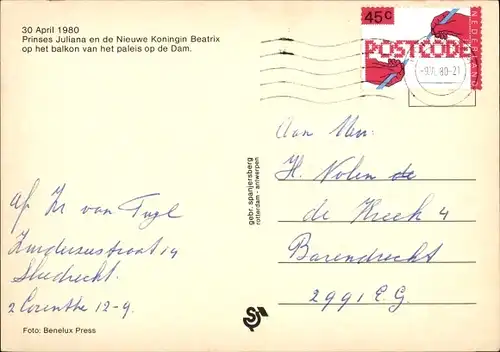 30 April 1980
Prinses Juliana en de Nieuwe Koningin Beatrix
op het balkon van het paleis op de Dam.
45c
POSTCODE
NEDERLAND
80-21
Aan Mw:
H. Nolen de
de Kreek 4
Barendrecht
2991 E.G.
gebr. spanjersberg
rotterdam - antwerpen
van Tuyl
Sliedrecht.
2 Corinthe 12-9.
Foto: Benelux Press